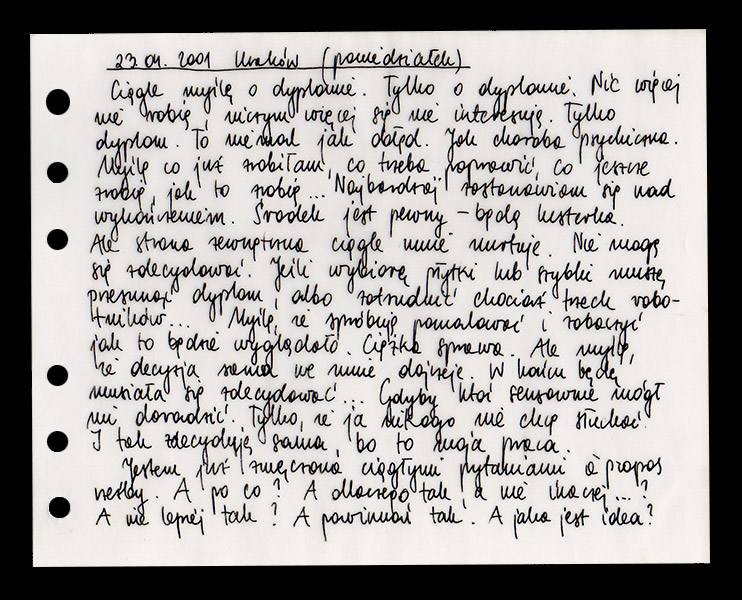 23.04.2001 Kraków (poniedziałek)
Ciągle myślę o dyplomie. Tylko o dyplomie. Nic więcej
nie robię, niczym więcej się nie interesuję. Tylko
dyplom. To niemal jak obłęd. Jak choroba psychiczna.
Myślę co już zrobiłam, co trzeba naprawić, co jeszcze
zrobię, jak to zrobię... Najbardziej zastanawiam się nad
wykończeniem. Środek jest pewny – będą lusterka.
Ale strona zewnętrzna ciągle mnie nurtuje. Nie mogę
się zdecydować. Jeśli wybiorę płytki lub szybki muszę
przesunąć dyplom, albo zatrudnić chociaż trzech robo-
tników... Myślę, że spróbuję pomalować i zobaczyć
jak to będzie wyglądało. Ciężka sprawa. Ale myślę,
że decyzja sama we mnie dojrzeje. W końcu będę
musiała się zdecydować... Gdyby ktoś sensownie mógł
mi doradzić. Tylko, że ja nikogo nie chcę słuchać.
I tak zdecyduję sama, bo to moja praca.
Jestem już zmęczona ciągłymi pytaniami à propos
rzeźby. A po co? A dlaczego tak, a nie inaczej...?
A nie lepiej tak? A powinnaś tak. A jaka jest idea?